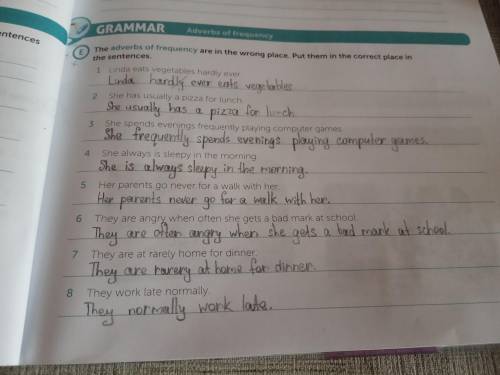 GRAMMAR Adverbs of frequency
entences
E The adverbs of frequency are in the wrong place. Put them in the correct place in
the sentences.
1 Linda eats vegetables hardly ever.
Linda hardly ever eats vegetables
2 She has usually a pizza for lunch.
She usually has a pizza for lunch.
3 She spends evenings frequently playing computer games.
She frequently spends evenings playing computer games.
4 She always is sleepy in the morning.
She is always sleepy in the morning.
5 Her parents go never for a walk with her.
Her parents never go for a walk with her.
6 They are angry when often she gets a bad mark at school.
They are often angry when she gets a bad mark at school.
7 They are at rarely home for dinner.
They are rarery at home for dinner.
8 They work late normally.
They normally work late.